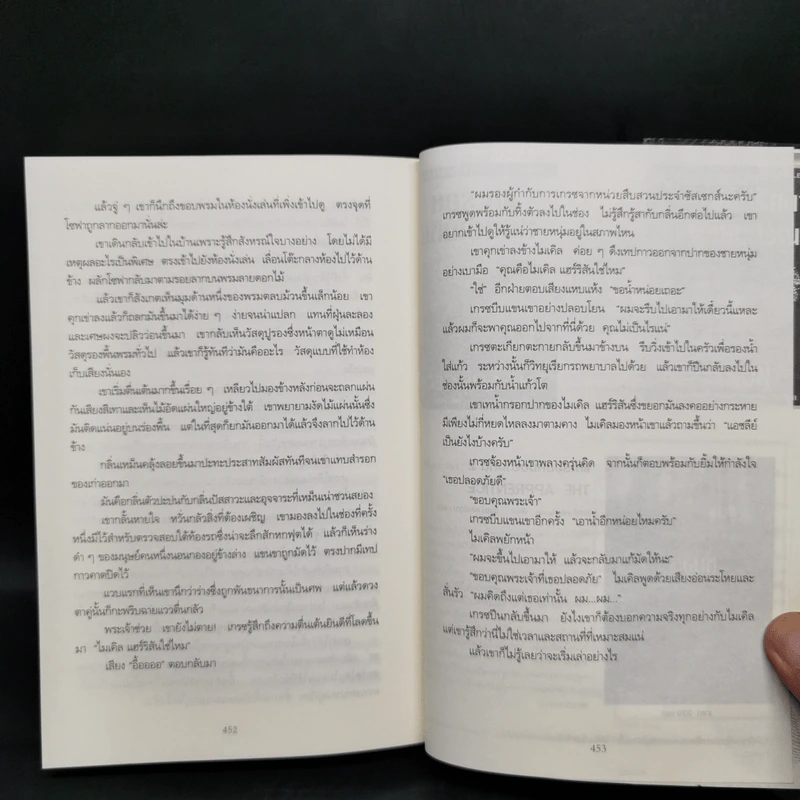 แล้วจู่ ๆ เขาก็นึกถึงขอบพรมในห้องนั่งเล่นที่เพิ่งเข้าไปดู ตรงจุดที่
โซฟาถูกลากออกมานั่นล่ะ
เขาเดินกลับเข้าไปในบ้านเพราะรู้สึกสังหรณ์ใจบางอย่าง โดยไม่ได้มี
เหตุผลอะไรเป็นพิเศษ ตรงเข้าไปยังห้องนั่งเล่น เลื่อนโต๊ะกลางห้องไปไว้ด้าน
ข้าง ผลักโซฟากลับมาตามรอยลากบนพรมลายดอกไม้
แล้วเขาก็สังเกตเห็นมุมด้านหนึ่งของพรมตลบม้วนขึ้นเล็กน้อย เขา
คุกเข่าลงแล้วก็ถลกมันขึ้นมาได้ง่าย ๆ ง่ายจนน่าแปลก แทนที่ฝุ่นละออง
และเศษผงจะปลิวว่อนขึ้นมา เขากลับเห็นวัสดุปูรองซึ่งหน้าตาดูไม่เหมือน
วัสดุรองพื้นพรมทั่วไป แล้วเขาก็รู้ทันทีว่ามันคืออะไร วัสดุแบบที่ใช้ทำห้อง
เก็บเสียงนั่นเอง
เขาเริ่มตื่นเต้นมากขึ้นเรื่อย ๆ เหลียวไปมองข้างหลังก่อนจะถลกแผ่น
กันเสียงสีเทาและเห็นไม้อัดแผ่นใหญ่อยู่ข้างใต้ เขาพยายามงัดไม้แผ่นนั้นซึ่ง
มันติดแน่นอยู่บนร่องพื้น แต่ในที่สุดก็ยกมันออกมาได้แล้วจึงลากไปไว้ด้าน
ข้าง
กลิ่นเหม็นคลุ้งลอยขึ้นมาปะทะประสาทสัมผัสทันทีจนเขาแทบสำรอก
ของเก่าออกมา
มันคือกลิ่นตัวปะปนกับกลิ่นปัสสาวะและอุจจาระที่เหม็นเน่าชวนสยอง
เขากลั้นหายใจ หวั่นกลัวสิ่งที่ต้องเผชิญ เขามองลงไปในช่องที่ครั้ง
หนึ่งมีไว้สำหรับตรวจสอบใต้ท้องรถซึ่งน่าจะลึกสักหกฟุตได้ แล้วก็เห็นร่าง
ดำ ๆ ของมนุษย์คนหนึ่งนอนกองอยู่ข้างล่าง แขนขาถูกมัดไว้ ตรงปากมีเทป
กาวคาดปิดไว้
แวบแรกที่เห็นเขานึกว่าร่างซึ่งถูกพันธนาการนั้นเป็นศพ แต่แล้วดวง
ตาคู่นั้นก็กะพริบฉายแววตื่นกลัว
พระเจ้าช่วย เขายังไม่ตาย! เกรซรู้สึกถึงความตื่นเต้นยินดีที่โลดขึ้น
มา "ไมเคิล แฮร์ริสันใช่ไหม"
เสียง "อื้อออออ" ตอบกลับมา
452
"ผมรองผู้กำกับการเกรซจากหน่วยสืบสวนประจำซัสเซกส์นะครับ"
เกรซพูดพร้อมกับทิ้งตัวลงไปในช่อง ไม่รู้สึกรู้สากับกลิ่นอีกต่อไปแล้ว เขา
อยากเข้าไปดูให้รู้แน่ว่าชายหนุ่มอยู่ในสภาพไหน
เขาคุกเข่าลงข้างไมเคิล ค่อย ๆ ดึงเทปกาวออกจากปากของชายหนุ่ม
อย่างเบามือ "คุณคือไมเคิล แฮร์ริสันใช่ไหม"
"ใช่" อีกฝ่ายตอบเสียงแหบแห้ง "ขอน้ำหน่อยเถอะ"
เกรซบีบแขนเขาอย่างปลอบโยน "ผมจะรีบไปเอามาให้เดี๋ยวนี้แหละ
แล้วผมก็จะพาคุณออกไปจากที่นี่ด้วย คุณไม่เป็นไรแน่"
เกรซตะเกียกตะกายกลับขึ้นมาข้างบน รีบวิ่งเข้าไปในครัวเพื่อรองน้ำ
ใส่แก้ว ระหว่างนั้นก็วิทยุเรียกรถพยาบาลไปด้วย แล้วเขาก็ปีนกลับลงไปใน
ช่องนั้นพร้อมกับน้ำแก้วโต
เขาเทน้ำกรอกปากของไมเคิล แฮร์ริสันซึ่งขยอกมันลงคออย่างกระหาย
มีเพียงไม่กี่หยดไหลลงมาตามคาง ไมเคิลมองหน้าเขาแล้วถามขึ้นว่า "แอชลีย์
เป็นยังไงบ้างครับ"
เกรซจ้องหน้าเขาพลางครุ่นคิด จากนั้นก็ตอบพร้อมกับยิ้มให้กำลังใจ
"เธอปลอดภัยดี"
"ขอบคุณพระเจ้า"
เกรซบีบแขนเขาอีกครั้ง "เอาน้ำอีกหน่อยไหมครับ"
ไมเคิลพยักหน้า
"ผมจะขึ้นไปเอามาให้ แล้วจะกลับมาแก้มัดให้นะ"
"ขอบคุณพระเจ้าที่เธอปลอดภัย" ไมเคิลพูดด้วยเสียงอ่อนระโหยและ
สั่นรัว "ผมคิดถึงแต่เธอเท่านั้น ผม...ผม..."
เกรซปีนกลับขึ้นมา ยังไงเขาก็ต้องบอกความจริงทุกอย่างกับไมเคิล
แต่เขารู้สึกว่านี่ไม่ใช่เวลาและสถานที่ที่เหมาะสมแน่
แล้วเขาก็ไม่รู้เลยว่าจะเริ่มเล่าอย่างไร
453